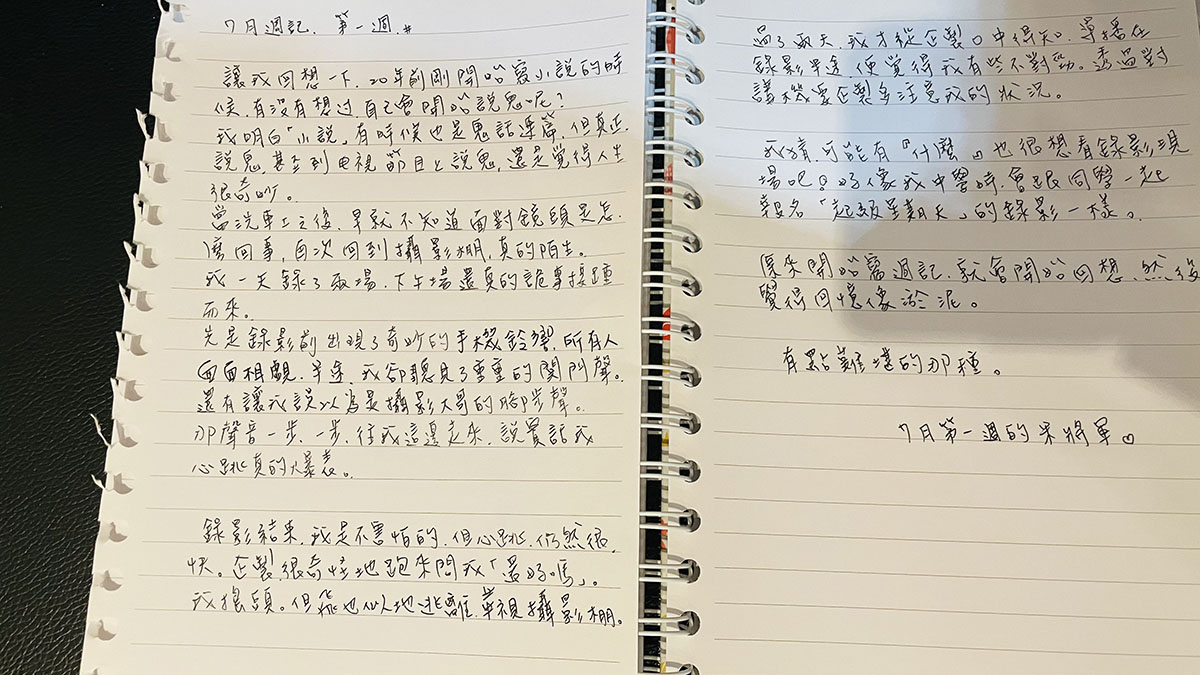 7月週記. 第一週.#
讓我回想一下. 20年前剛開始寫小說的時
候.有沒有想过.自己會開始說鬼呢?
我明白「小說」有時候也是鬼話連篇.但真正
說鬼.甚至到电視節目上說鬼.還是覺得人生
很奇妙。
當洗車工之後.早就不知道面對鏡頭是怎.
麼回事,首次回到攝影棚,真的陌生。
我一天錄了兩場.下午場還真的詭事接踵
而來。
先是錄影前出現了奇妙的手機鈴響.所有人
面面相覷.半途.我卻聽見了重重的開門聲。
還有讓我誤以為是攝影大哥的腳步聲。
那聲音一步.一步.往我這邊走來.說實話我
心跳真的大暴表。
錄影結束.我是不害怕的.但心跳.仍然很.
快。企製.很奇怪地跑來問我「還好嗎」。
我搖頭。但飛也似地逃離.華視攝影棚。
過了兩天.我才從企製口中得知.導播在
錄影半途.便覺得我有些不對勁。透過對
講機要企製多注意我的狀況。
我猜.可能有『什麼』也很想看錄影現
場吧。好像我中學時.會跟同學一起
報名「超級星期天」的錄影一樣。
原來開始寫週記.就會開始回想.然後
覺得回憶像淤泥。
有點難堪的那種。
7月第一週的果將軍。